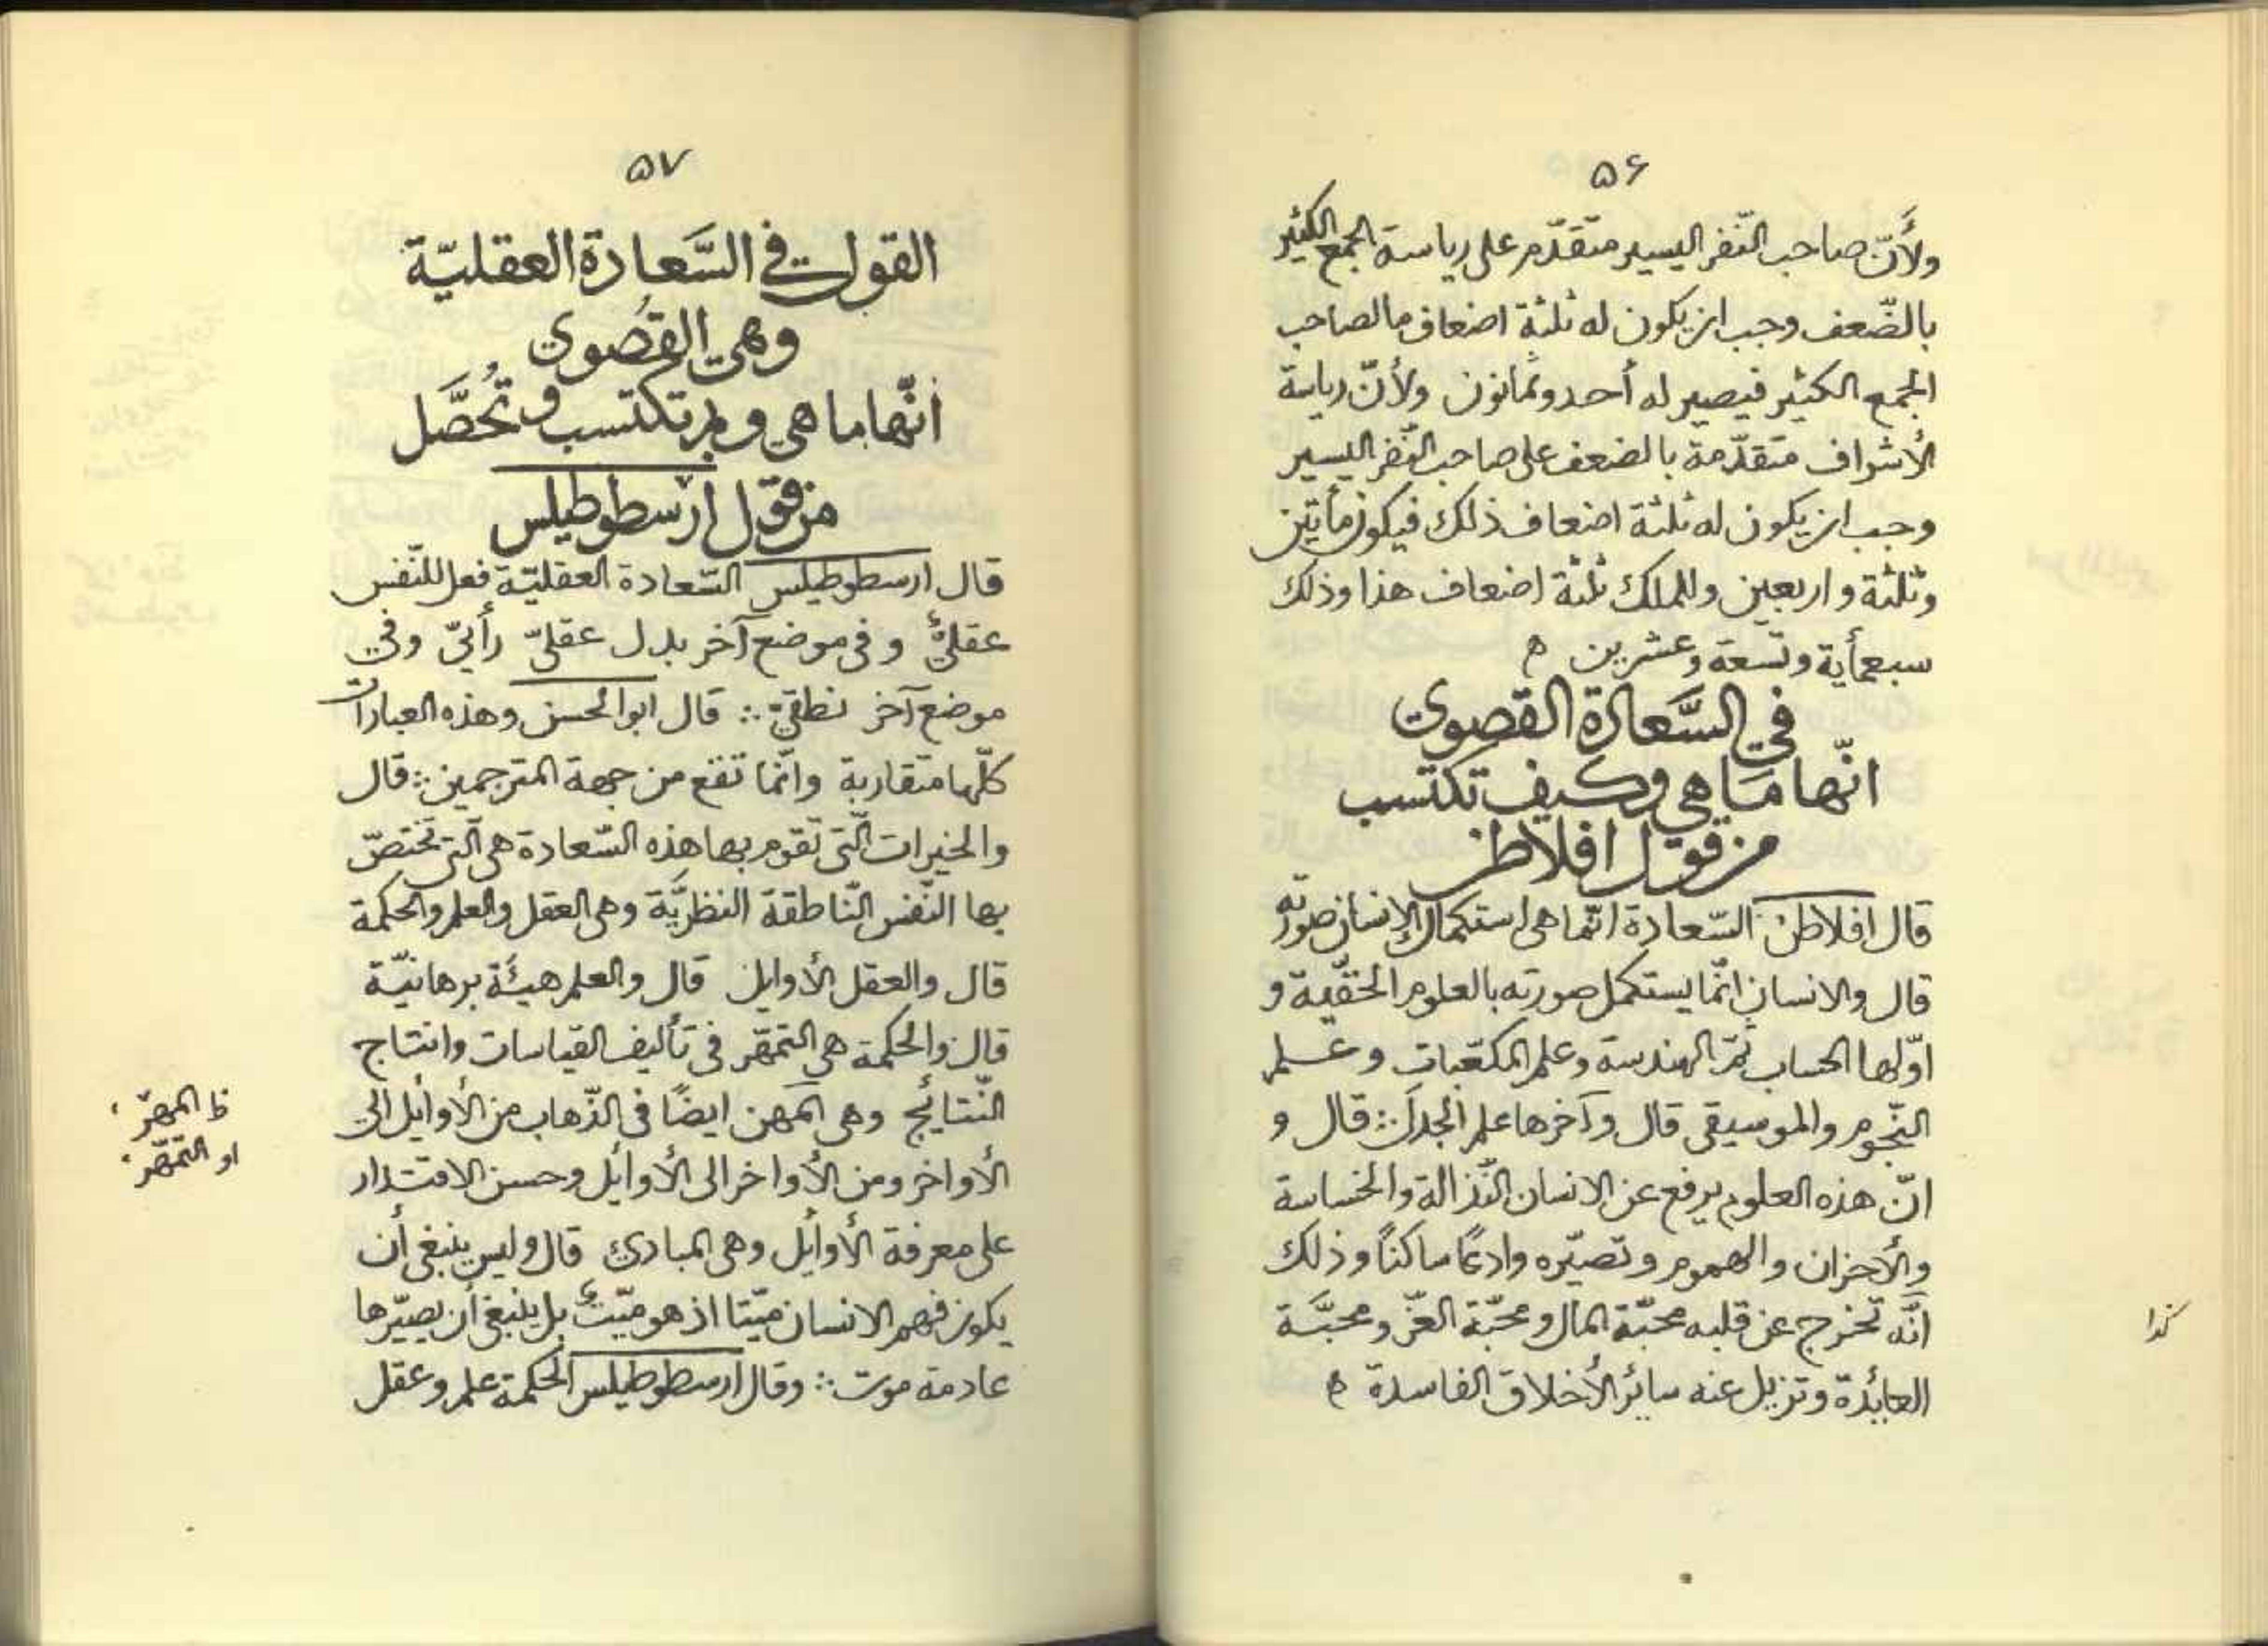 ۵۶
ولأنّ صاحب النّفر اليسير متقدّم على رياسة الجمع الكثير
بالضّعف وجب ان يكون له ثلثة اضعاف ما لصاحب
الجمع الكثير فيصير له أحد وثمانون ولأنّ رياسة
الأشراف متقدّمة بالضعف على صاحب النّفر اليسير
وجب ان يكون له ثلثة اضعاف ذلك فيكون مأتين
وثلثة واربعين وللملك ثلثة اضعاف هذا وذلك
سبعمأية وتسعة وعشرين ه
في السَّعادة القصوى
انّها ما هي وكيف تكتسب
من قول افلاطن
قال افلاطن السّعادة انّما هى استكمال الإنسان صورته
قال والانسان انّما يستكمل صورته بالعلوم الحقّيّة و
اوّلها الحساب ثمّ الهندسة وعلم المكعّبات وعلم
النّجوم والموسيقى قال وآخرها علم الجدل ∴ قال و
انّ هذه العلوم يرفع عن الانسان النّذالة والخساسة
والأحزان والهموم وتصيّره وادعًا ساكنًا وذلك
انّه تخرج عن قلبه محبّة المال ومحبّة العزّ ومحبَّة
كذا
العابدة وتزيل عنه سائر الأخلاق الفاسدة ه
۵۷
القول في السَّعادة العقليّة
وهي القُصوى
انّها ما هي وبم تكتسب وتُحصَّل
من قول ارسطوطيلس
قال ارسطوطيلس السّعادة العقليّة فعل للنّفس
عقليٌّ وفى موضع آخر بدل عقليّ رأيىّ وفي
موضع آخر نطقيّ ∴ قال ابو الحسن وهذه العبارات
كلّها متقاربة وانّما تقع من جهة المترجمين ∴ قال
والخيرات الّتى تقوم بها هذه السّعادة هى الّتى تختصّ
بها النّفس النّاطقة النظريَّة وهى العقل والعلم والحكمة
قال والعقل الأوايل قال والعلم هيئَة برهانيّة
قال والحكمة هي التمهّر فى تأليف القياسات وانتاج
النّتايج وهى المهن ايضًا فى الذّهاب من الأوايل الى
ظ المهرّ،
او التمهّر،
الأواخر ومن الأواخر الى الأوايل وحسن الاقتدار
على معرفة الأوايل وهى المبادئ قال وليس ينبغى أن
يكون فهم الانسان ميّتا اذ هو ميّت بل ينبغى أن يصيّرها
عادمة موت ∴ وقال ارسطوطيلس الحكمة علم وعقل